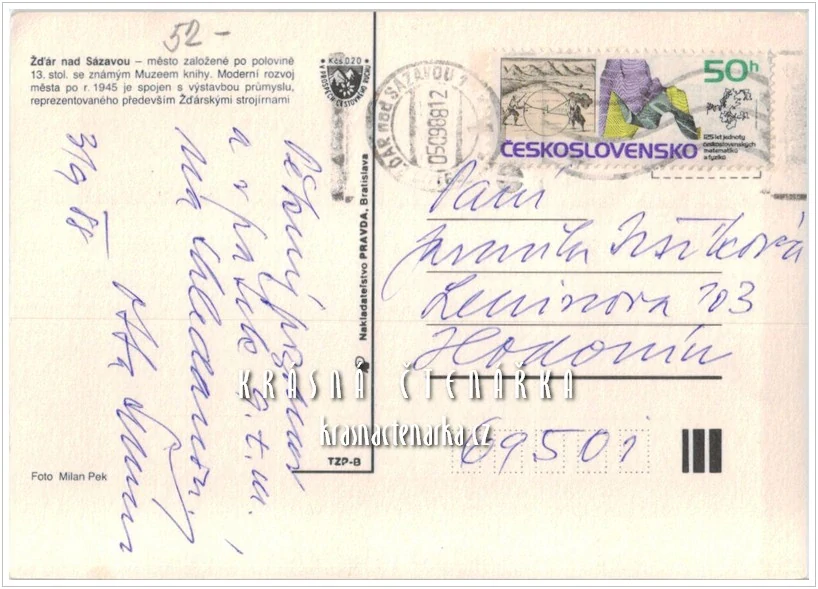 52-
Žďár nad Sázavou – město založené po polovině
13. stol. se známým Muzeem knihy. Moderní rozvoj
města po r. 1945 je spojen s výstavbou průmyslu,
reprezentovaného především Žďárskými strojírnami
Kčs 0,20
ŽĎÁR nad SÁZAVOU 1
050988 12
50h
ČESKOSLOVENSKO
125 let jednoty
československých
matematiků
a fyziků
Pěkný pozdrav
a v pátek 9. t. m.
na shledanou!
3/9 88
Nakladateľstvo PRAVDA, Bratislava
Paní
Jarmila
Leninova 103
Hodonín
69501
KRÁSNÁ ČTENÁŘKA
krasnactenarka.cz
TZP-B
Foto Milan Pek